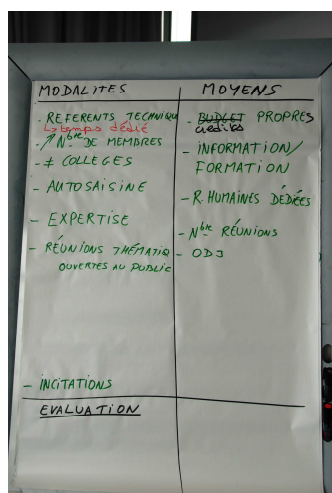 MODALITES
- REFERENTS TECHNIQU
↳ temps dédié
- ↗ Nbre DE MEMBRES
- ≠ COLLEGES
- AUTOSAISINE
- EXPERTISE
- RÉUNIONS THÉMATIQ
OUVERTES AU PUBLIC
- INCITATIONS
EVALUATION
MOYENS
- BUDGET PROPRES
crédits
- INFORMATION/
FORMATION
- R. HUMAINES DÉDIÉES
- Nbre RÉUNIONS
- ODJ